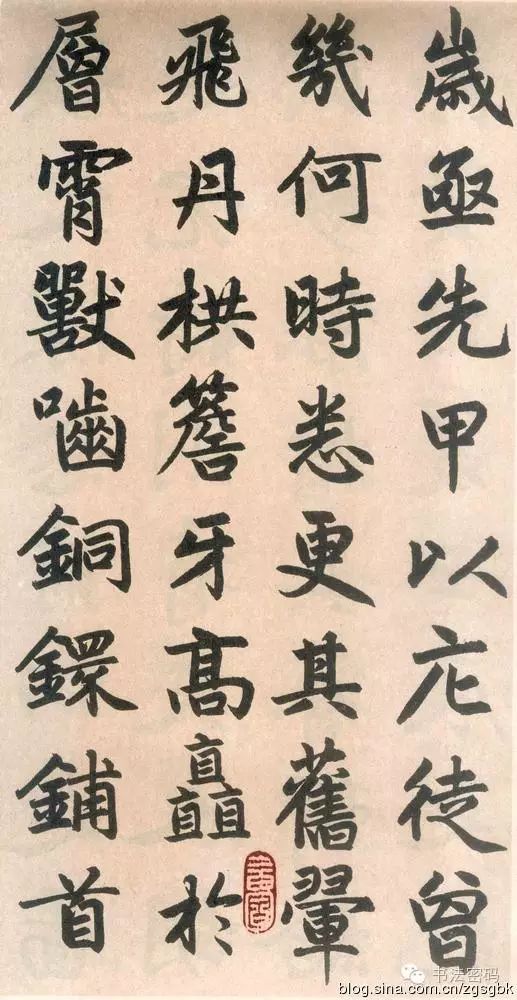 歲亟先甲以庀徒曾
幾何時悉更其舊翬
飛丹栱簷牙高矗於
層霄獸嚙銅鐶鋪首
书法密码
blog.sina.com.cn/zgsgbk